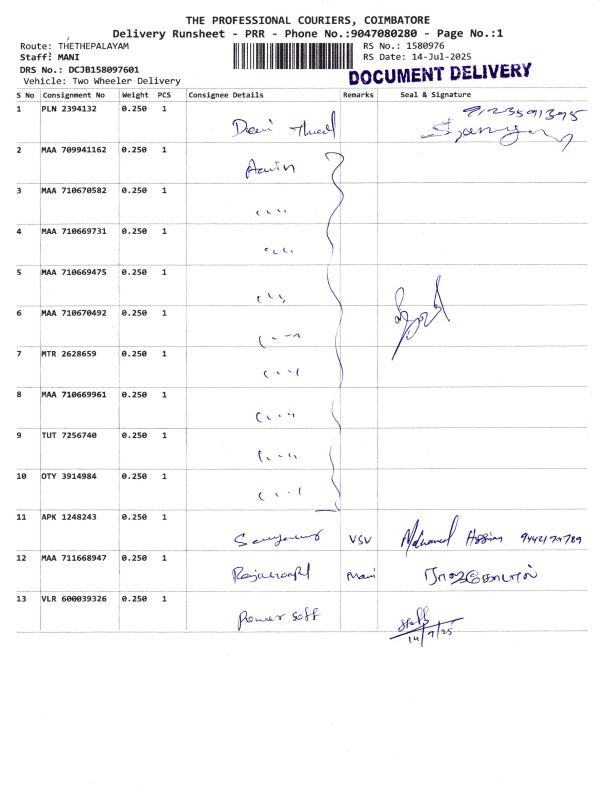 THE PROFESSIONAL COURIERS, COIMBATORE
Delivery Runsheet - PRR - Phone No.:9047080280 - Page No.:1
Route: THETHEPALAYAM
RS No.: 1580976
Staff: MANI
RS Date: 14-Jul-2025
DRS No.: DCJB158097601
DOCUMENT DELIVERY
Vehicle: Two Wheeler Delivery
S No Consignment No Weight PCS Consignee Details Remarks Seal & Signature
1 PLN 2394132 0.250 1
2 MAA 709941162 0.250 1
3 MAA 710670582 0.250 1
4 MAA 710669731 0.250 1
5 MAA 710669475 0.250 1
6 MAA 710670492 0.250 1
7 MTR 2628659 0.250 1
8 MAA 710669961 0.250 1
9 TUT 7256740 0.250 1
10 OTY 3914984 0.250 1
11 APK 1248243 0.250 1 VSV Mohamed
12 MAA 711668947 0.250 1 Mani
13 VLR 600039326 0.250 1 Power soff
14/7/25